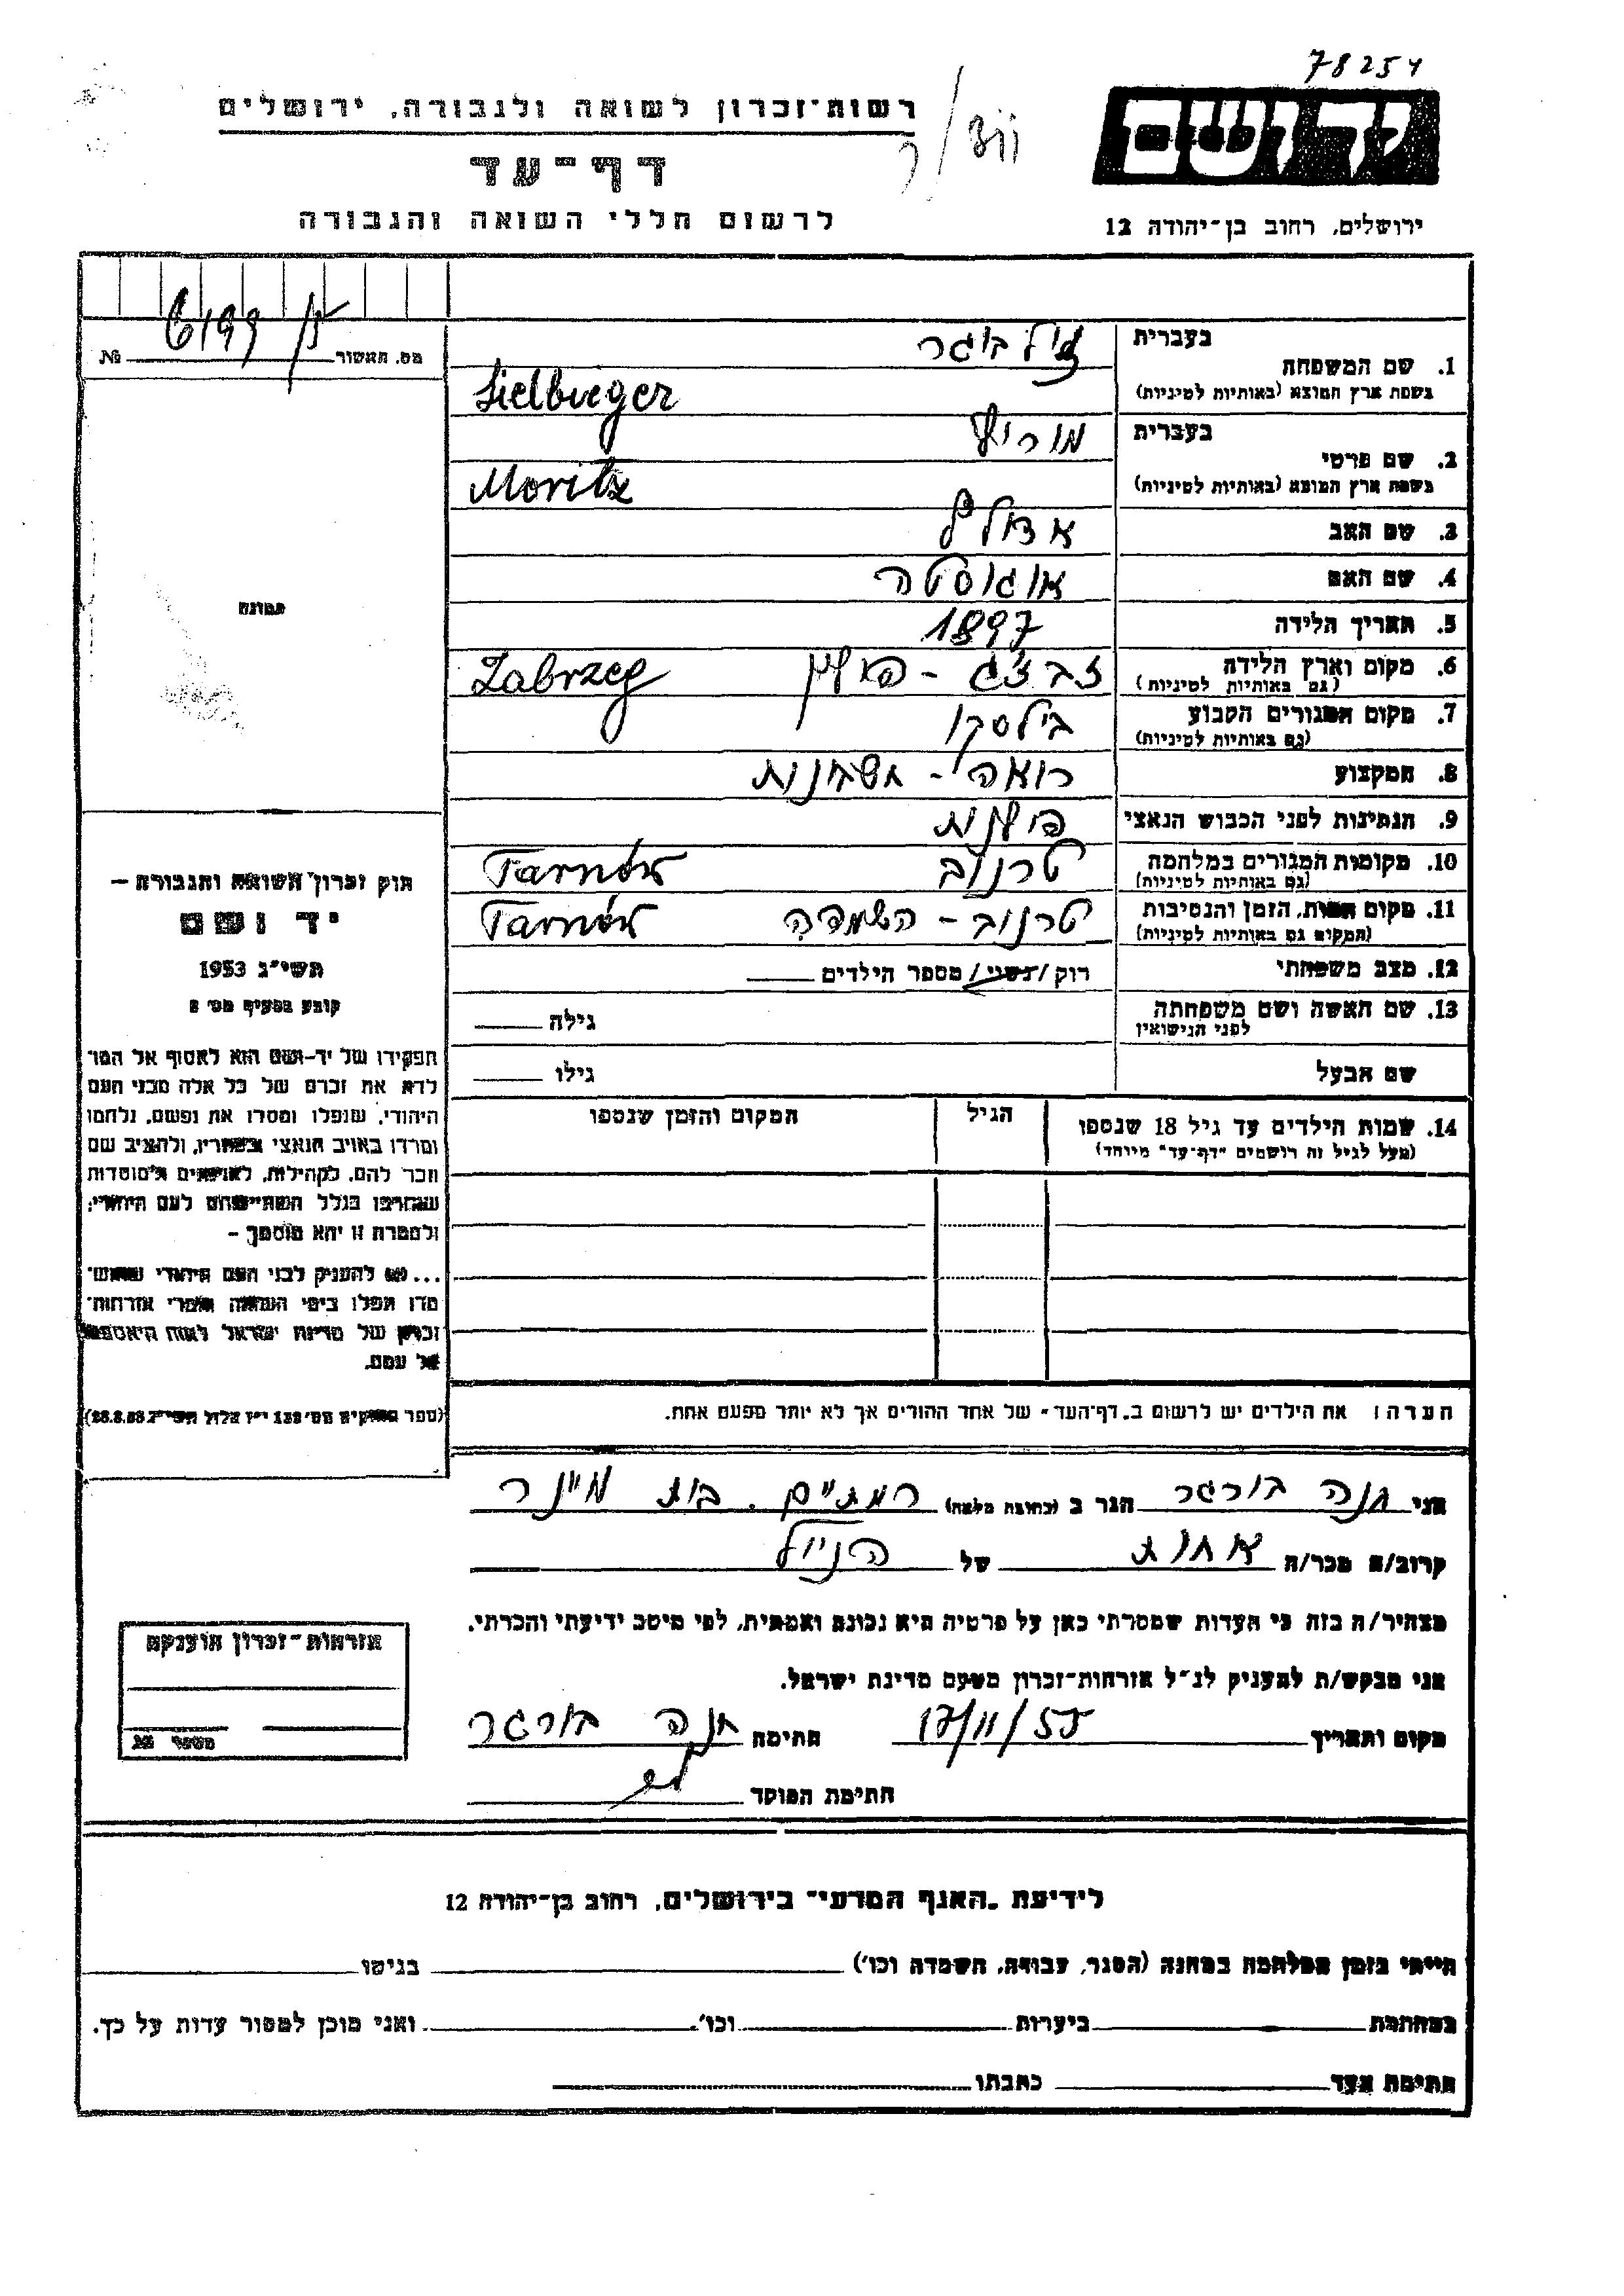 78254
רשות-זכרון לשואה ולגבורה, ירושלים
דף-עד
לרשום חללי השואה והגבורה
יד ושם
ירושלים, רחוב בן-יהודה 12
מס. האשור № 6199
1. שם המשפחה
בעברית
בשפת ארץ המוצא (באותיות לטיניות)
Sielbueger
2. שם פרטי
בעברית מוריץ
בשפת ארץ המוצא (באותיות לטיניות) Moritz
3. שם האב אדולף
4. שם האם אוגוסטה
5. תאריך הלידה 1897
6. מקום וארץ הלידה
(גם באותיות לטיניות) Zabrzeg
7. מקום המגורים הקבוע
(גם באותיות לטיניות) בילסקו
8. המקצוע רואה-חשבונות
9. הנתינות לפני הכבוש הנאצי
10. מקומות המגורים במלחמה
(גם באותיות לטיניות) טרנוב Tarnów
11. מקום המות, הזמן והנסיבות
(המקום גם באותיות לטיניות) טרנוב - השמדה Tarnów
12. מצב משפחתי רוק/נשוי/מספר הילדים
13. שם האשה ושם משפחתה
לפני הנישואין
גילה
שם הבעל גילו
14. שמות הילדים עד גיל 18 שנספו
(מעל לגיל זה רושמים "דף-עד" מיוחד)
הגיל
המקום והזמן שנספו
תמונה
חוק זכרון השואה והגבורה –
יד ושם
תשי"ג 1953
קובע בסעיף מס' 2
תפקידו של יד-ושם הוא לאסוף אל המו
לדת את זכרם של כל אלה מבני העם
היהודי, שנפלו ומסרו את נפשם, נלחמו
ומרדו באויב הנאצי ובעוזריו, ולהציב שם
וזכר להם, לקהילות, לארגונים ולמוסדות
שנחרבו בגלל השתייכותם לעם היהודי;
ולמטרה זו יהא מוסמך –
להעניק לבני העם היהודי
זכרון של מדינת ישראל לאות היאספם
אל עמם.
הערה: את הילדים יש לרשום ב"דף-העד" של אחד ההורים אך לא יותר מפעם אחת.
אני חנה בורגר הגר ב (כתובת מלאה) רמתיים.
קרוב/ה מכר/ה אחות של הנ"ל
מצהיר/ה בזה כי העדות שמסרתי כאן על פרטיה היא נכונה ואמתית, לפי מיטב ידיעתי והכרתי.
אני מבקש/ת להעניק לנ"ל אזרחות-זכרון מטעם מדינת ישראל.
מקום ותאריך 17/11/55 חתימה חנה בורגר
חתימת המוסד
אזרחות-זכרון הוענקה
מספר №
לידיעת "האגף המדעי" בירושלים, רחוב בן-יהודה 12
הייתי בזמן המלחמה במחנה (הסגר, עבודה, השמדה וכו') בגיטו
במחתרת ביערות וכו'. ואני מוכן למסור עדות על כך.
חתימת העד כתבתו